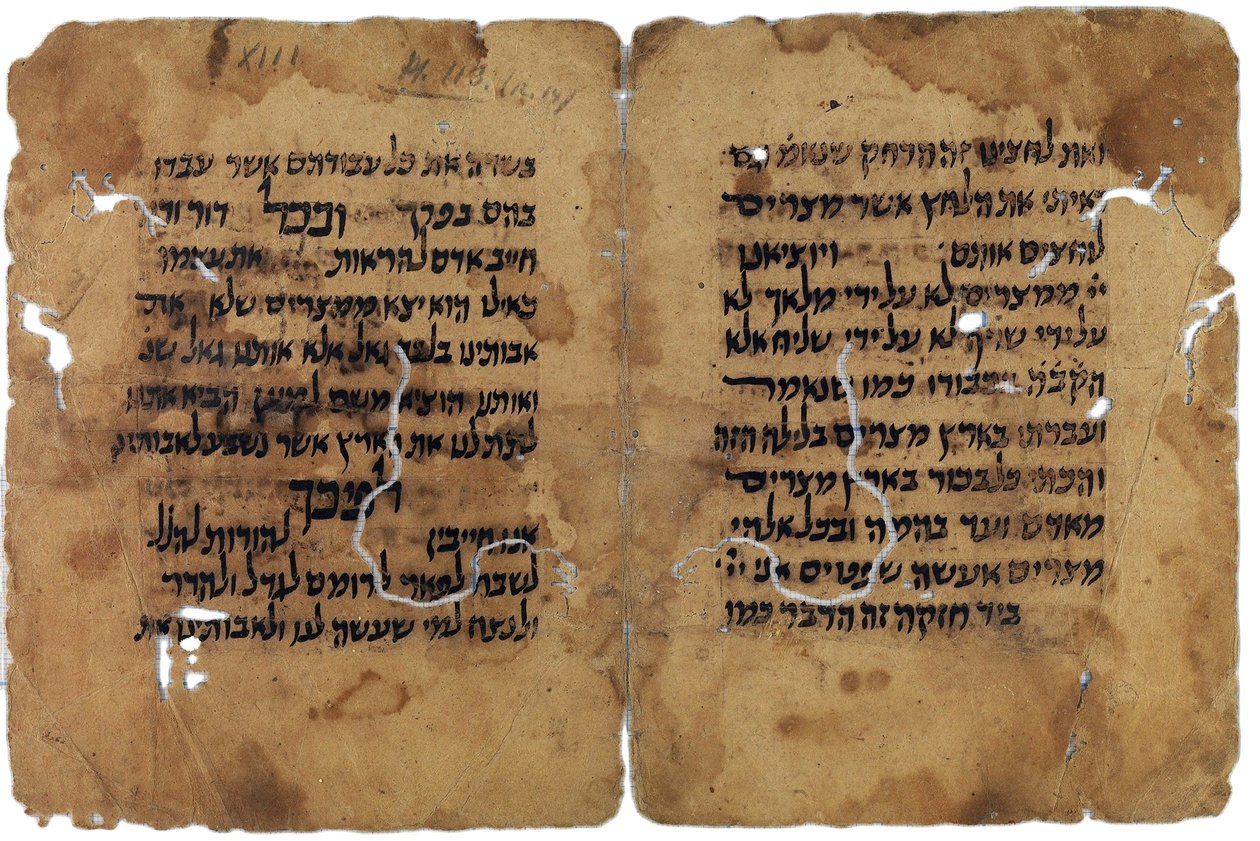 ואת לחצינו זה הדחק שנאמ גם
ראיתי את הלחץ אשר מצרים
לחצים אותם ויוציאנו
ייי ממצרים לא על ידי מלאך לא
על ידי שרף לא על ידי שליח אלא
הקבה בכבודו כמו שנאמר
ועברתי בארץ מצרים בלילה הזה
והכתי כל בכור בארץ מצרים
מאדם ועד בהמה ובכל אלהי
מצרים אעשה שפטים אני ייי
ביד חזקה זה הדבר כמו
XIII
H. 113.
בשדה את כל עבודתם אשר עבדו
בהם בפרך ובכל דור ודור
חייב אדם להראות את עצמו
כאילו הוא יצא ממצרים שלא את
אבותינו בלבד גאל אלא אותנו גאל שנ
ואותנו הוציא משם למען הביא אתנו
לתת לנו את הארץ אשר נשבע לאבותינו
לפיכך
אנו חייבין להודות להלל
לשבח לפאר לרומם לגדל ולהדר
ולנצח למי שעשה לנו ולאבותינו את